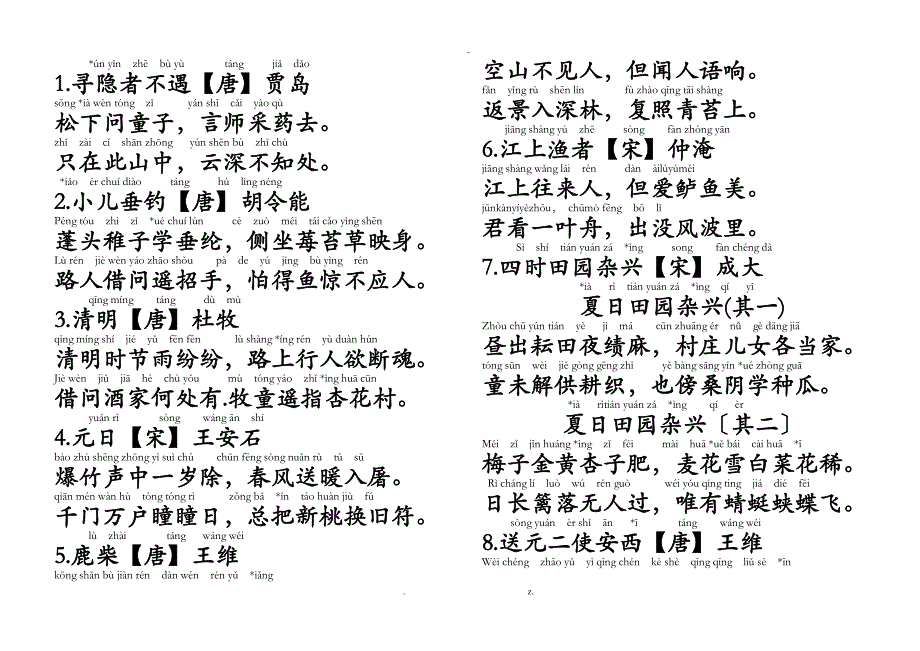 *ún yǐn zhě bù yù táng jiǎ dǎo
1.寻隐者不遇【唐】贾岛
sōng *ià wèn tóng zǐ yán shī cǎi yào qù
松下问童子，言师采药去。
zhǐ zài cǐ shān zhōng yún shēn bù zhī chù
只在此山中，云深不知处。
*iǎo ér chuí diào táng hú lìng néng
2.小儿垂钓【唐】胡令能
Péng tóu zhì zǐ *ué chuí lún cè zuò méi tái cǎo yìng shēn
蓬头稚子学垂纶，侧坐莓苔草映身。
Lù rén jiè wèn yáo zhāo shǒu pà dé yú jīng bù yìng rén
路人借问遥招手，怕得鱼惊不应人。
qīng míng táng dù mù
3.清明【唐】杜牧
qīng míng shí jié yǔ fēn fēn lù shàng *íng rén yù duàn hún
清明时节雨纷纷，路上行人欲断魂。
Jiè wèn jiǔ jiā hé chù yǒu mù tóng yáo zhǐ *ìng huā cūn
借问酒家何处有.牧童遥指杏花村。
yuán rì sòng wáng ān shí
4.元日【宋】王安石
bào zhú shēng zhōng yī suì chú chūn fēng sòng nuǎn rù tú sū
爆竹声中一岁除，春风送暖入屠。
qiān mén wàn hù tóng tóng rì zǒng bǎ *īn táo huàn jiù fú
千门万户瞳瞳日，总把新桃换旧符。
lù zhài táng wáng wéi
5.鹿柴【唐】王维
kōng shān bù jiàn rén dàn wén rén yǔ *iǎng
空山不见人，但闻人语响。
fǎn yǐng rù shēn lín fù zhào qīng tāi shàng
返景入深林，复照青苔上。
jiāng shàng yú zhě sòng fàn zhòng yān
6.江上渔者【宋】仲淹
jiāng shàng wǎng lái rén dàn àilúyúměi
江上往来人，但爱鲈鱼美。
jūnkànyíyèzhōu，chūmò fēng bō lǐ
君看一叶舟，出没风波里。
Sì shí tián yuán zá *ìng song fàn chéng dà
7.四时田园杂兴【宋】成大
*ià rì tián yuán zá *ìng qí yī
夏日田园杂兴(其一)
Zhòu chū yún tián yè jì má cūn zhuāng ér nǚ gè dāng jiā
昼出耘田夜绩麻，村庄儿女各当家。
tóng sūn wèi jiě gòng gēng zhī yě bàng sāng yīn *ué zhòng guā
童未解供耕织，也傍桑阴学种瓜。
*ià rìtián yuán zá *ìng qí èr
夏日田园杂兴〔其二〕
Méi zǐ jīn huáng *ìng zǐ féi mài huā *uě bái cài huā *ī
梅子金黄杏子肥，麦花雪白菜花稀。
Rì cháng lí luò wú rén guò wéi yǒu qīng tíng jiá dié fēi
日长篱落无人过，唯有蜻蜓蛱蝶飞。
sòng yuán èr shǐ ān *ī táng wáng wéi
8.送元二使安西【唐】王维
Wèi chéng zhāo yǔ yì qīng chén kè shè qīng qīng liǔ sè *īn
. z.